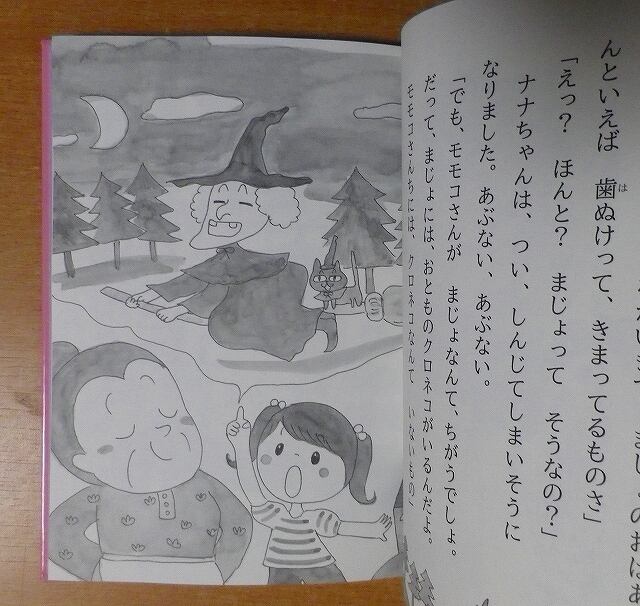 んといえば　歯ぬけって、きまってるものさ」
「えっ？　ほんと？　まじょって　そうなの？」
ナナちゃんは、つい、しんじてしまいそうに
なりました。あぶない、あぶない。
「でも、モモコさんが　まじょなんて、ちがうでしょ。
だって、まじょには、おとものクロネコがいるんだよ。
モモコさんちには、クロネコなんて　いないもの」